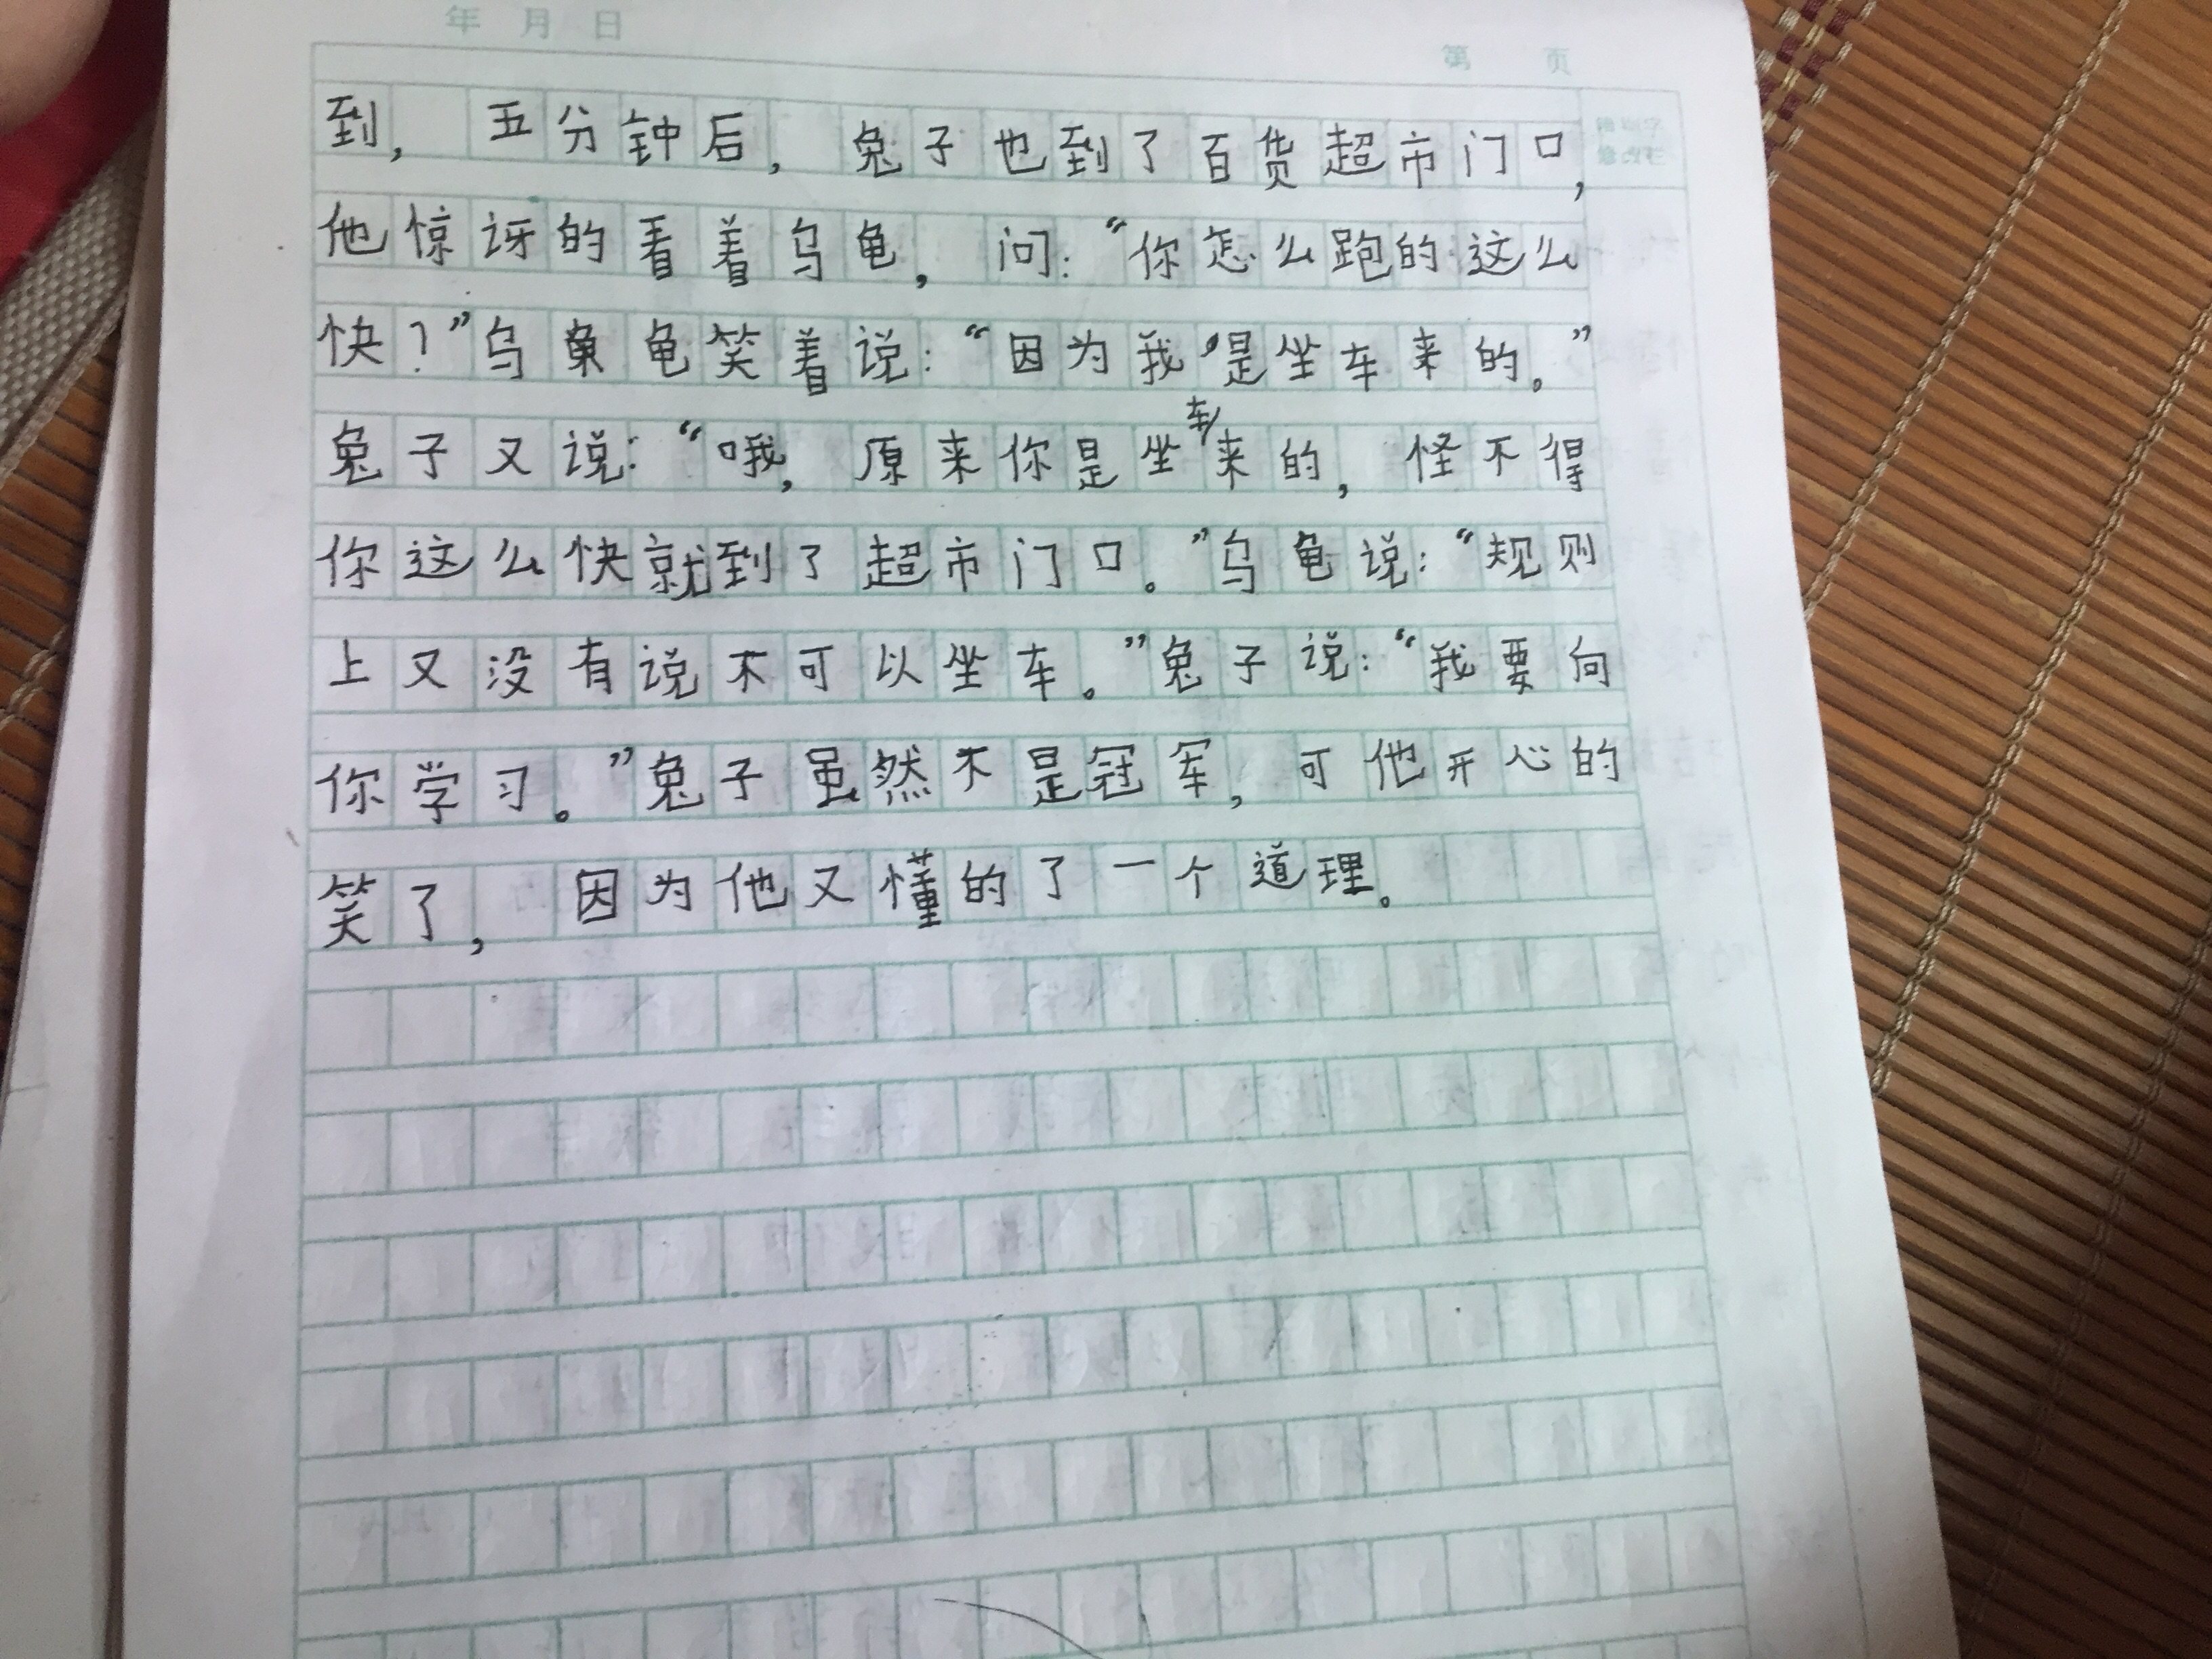 年 月 日
第 页
到，五分钟后，兔子也到了百货超市门口，
他惊讶的看着乌龟，问：“你怎么跑的这么
快？”乌龟笑着说：“因为我是坐车来的。”
兔子又说：“哦，原来你是坐车来的，怪不得
你这么快就到了超市门口。”乌龟说：“规则
上又没有说不可以坐车。”兔子说：“我要向
你学习。”兔子虽然不是冠军，可他开心的
笑了，因为他又懂的了一个道理。